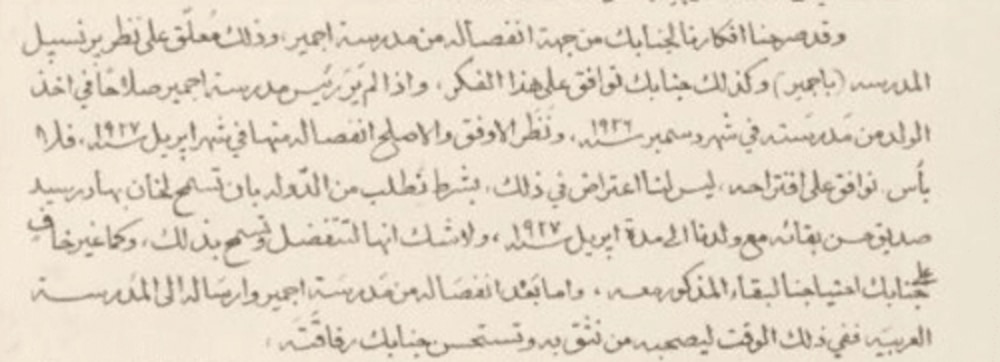 وقد صرحنا افكارنا لجنابك من جهة انفصاله من مدرسة اجمير، وذلك معلّق على نظر پرنسيپل
المدرسه (باجمير) وكذلك جنابك توافق على هذا الفكر، واذا لم يَرَ رئيس مدرسة اجمير صلاحًا في اخذ
الولد من مَدرسَته في شهر دسمبر سنة ١٩٢٦، ونَظَر الاوفق والاصلح انفصاله منها في شهر اپريل سنة ١٩٢٧، فلا
بأس نوافق على اقتراحه، ليس لنا اعتراض في ذلك، بشرط نطلب من الدّوله بان تسمح لخان بهادر سيد
صديق حسن بقائه مع ولدنا الى مدة اپريل سنة ١٩٢٧، ولاشك انها تتفضل وتسمح بذلك، وكما غير خافٍ
على جنابك احتياجنا لبقاء المذكور معه، واما بَعْد انفصَاله من مَدرسَة اجمير وارسَاله الى المَدرسة
العربيَه ففي ذلك الوقت ليصحبه من نثق به وتستحسن جنابك رفاقَتَه،